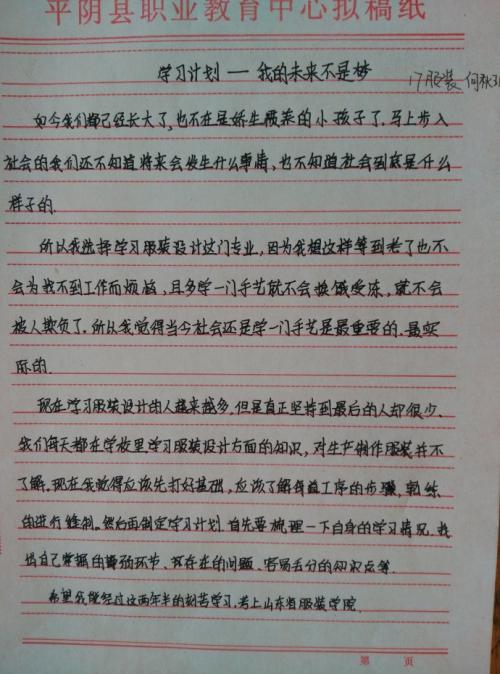 平阴县职业教育中心拟稿纸
学习计划 — 我的未来不是梦
17服装 何秋
如今我们都已经长大了,也不在是娇生惯养的小孩子了.马上步入
社会的我们还不知道将来会发生什么事情,也不知道社会到底是什么
样子的.
所以我选择学习服装设计这门专业,因为我想这样等到老了也不
会为找不到工作而烦恼,且多学一门手艺就不会挨饿受冻,就不会
被人欺负了.所以我觉得当今社会还是学一门手艺是最重要的.最实
际的.
现在学习服装设计的人越来越多.但是真正坚持到最后的人却很少.
我们每天都在学校里学习服装设计方面的知识,对生产制作服装并不
了解.现在我觉得应该先打好基础,应该了解缝益工序的步骤,熟练
的进行缝制.然后再制定学习计划 首先要梳理一下自身的学习情况.找
出自己掌握的薄弱环节、存在的问题、容易丢分的知识点等.
希望我能经过这两年半的刻苦学习.考上山东省服装学院.
第 页